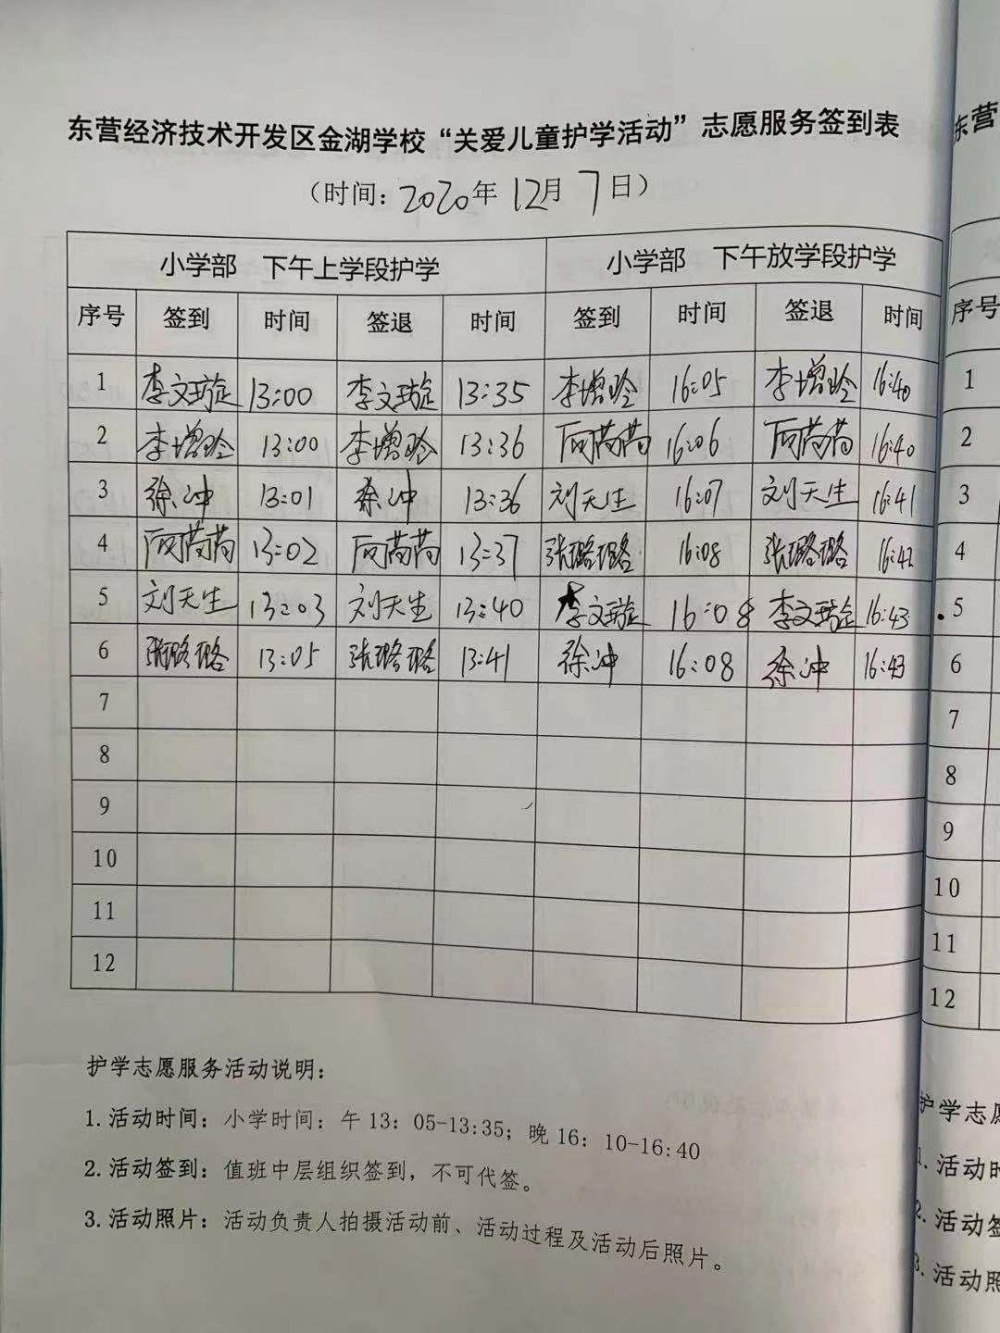 东营经济技术开发区金湖学校“关爱儿童护学活动”志愿服务签到表
(时间: 2020年 12月 7日)
小学部 下午上学段护学 小学部 下午放学段护学
序号 签到 时间 签退 时间 签到 时间 签退 时间
1 李文璇 13:00 李文璇 13:35 李增玲 16:05 李增玲 16:40
2 李增玲 13:00 李增玲 13:36 芮芮 16:06 芮芮 16:40
3 徐冲 13:01 徐冲 13:36 刘天生 16:07 刘天生 16:41
4 芮芮 13:02 芮芮 13:37 张璐璐 16:08 张璐璐 16:42
5 刘天生 13:03 刘天生 13:40 李文璇 16:08 李文璇 16:43
6 张璐璐 13:05 张璐璐 13:41 徐冲 16:08 徐冲 16:43
7
8
9
10
11
12
护学志愿服务活动说明:
1.活动时间: 小学时间: 午 13: 05-13:35; 晚 16: 10-16:40
2.活动签到: 值班中层组织签到, 不可代签。
3.活动照片: 活动负责人拍摄活动前、活动过程及活动后照片。
东营
序号
1
2
3
4
5
6
7
8
9
10
11
12
护学志愿
1.活动时
2.活动签
3.活动照